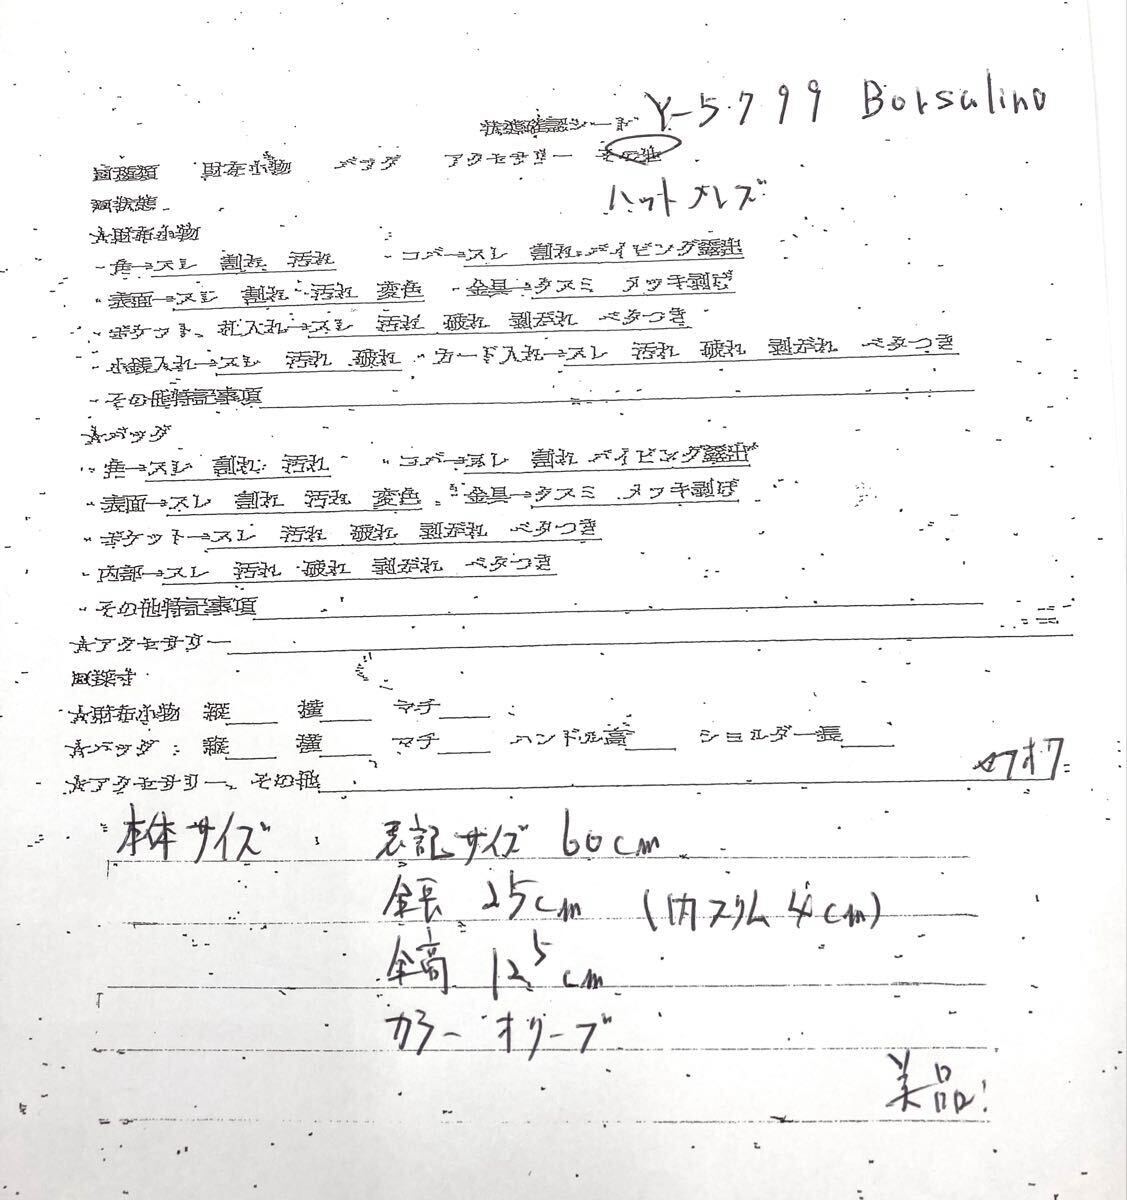 Y-5799 Borsalino
状態確認シート
□種類 財布小物 バッグ アクセサリー その他
ハット メンズ
□状態
★財布小物
・角→スレ 割れ 汚れ ・コバ→スレ 割れ パイピング露出
・表面→スレ 割れ 汚れ 変色 ・金具→クスミ メッキ剥げ
・ポケット、札入れ→スレ 汚れ 破れ 剥がれ ベタつき
・小銭入れ→スレ 汚れ 破れ ・カード入れ→スレ 汚れ 破れ 剥がれ ベタつき
・その他特記事項
★バッグ
・角→スレ 割れ 汚れ ・コバ→スレ 割れ パイピング露出
・表面→スレ 割れ 汚れ 変色 ・金具→クスミ メッキ剥げ
・ポケット→スレ 汚れ 破れ 剥がれ ベタつき
・内部→スレ 汚れ 破れ 剥がれ ベタつき
・その他特記事項
★アクセサリー
□採寸
★財布小物 縦 横 マチ
★バッグ:縦 横 マチ ハンドル高 ショルダー長
★アクセサリー、その他
本体サイズ 表記サイズ 60cm
全長 25cm (内ツバ4cm)
全高 12.5cm
カラー オリーブ
美品!